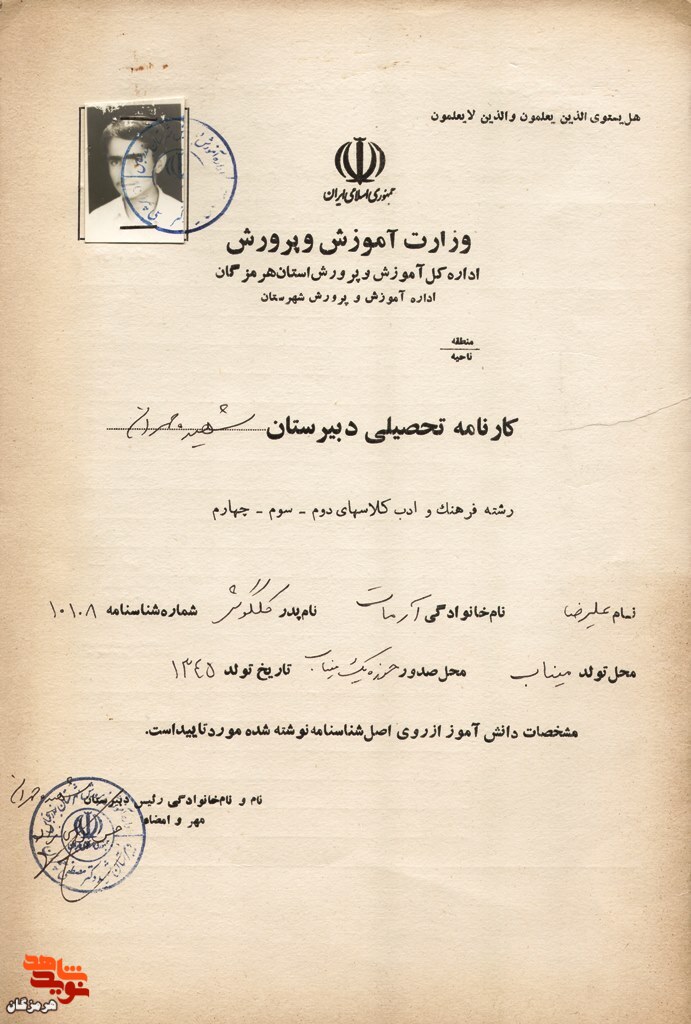 هل یستوی الذین یعلمون والذین لایعلمون
جمهوری اسلامی ایران
وزارت آموزش و پرورش
اداره کل آموزش و پرورش استان هرمزگان
اداره آموزش و پرورش شهرستان
منطقه
ناحیه
کارنامه تحصیلی دبیرستان شهید چمران
رشته فرهنگ و ادب کلاسهای دوم - سوم - چهارم
نام علیرضا نام خانوادگی نام پدر شماره شناسنامه ۱۰۱۰۸
محل تولد میناب محل صدور حوزه یک میناب تاریخ تولد ۱۳۴۵
مشخصات دانش آموز از روی اصل شناسنامه نوشته شده مورد تایید است.
نام و نام خانوادگی رئیس دبیرستان
مهر و امضاء
نوید شاهد
هرمزگان